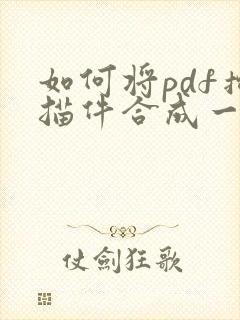 如何将pdf扫
描件合成一
仗劍狂歌